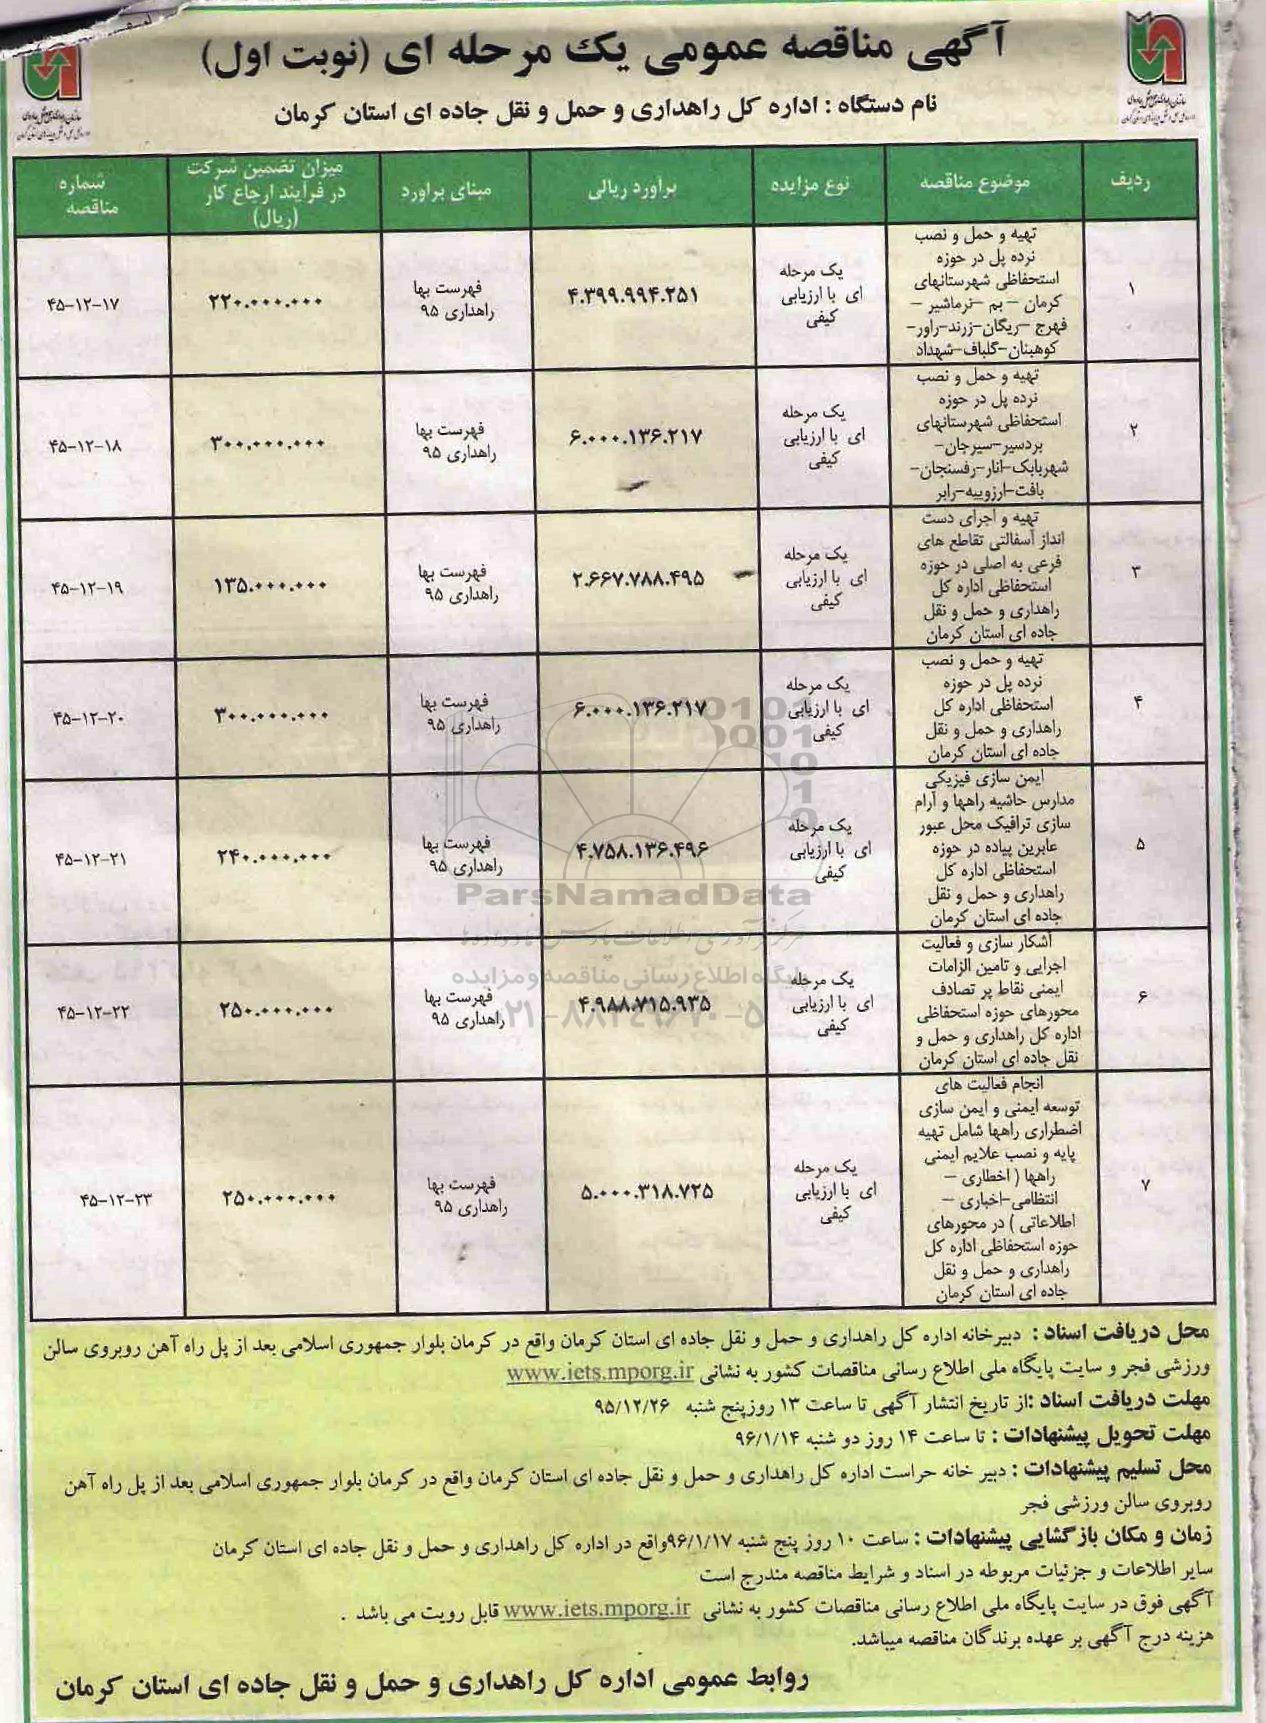 آگهی مناقصه عمومی یک مرحله ای (نوبت اول)
نام دستگاه : اداره کل راهداری و حمل و نقل جاده ای استان کرمان
ردیف
موضوع مناقصه
نوع مزایده
برآورد ریالی
مبنای براورد
میزان تضمین شرکت
در فرآیند ارجاع کار
(ریال)
شماره
مناقصه
۱
تهیه و حمل و نصب
نرده پل در حوزه
استحفاظی شهرستانهای
کرمان – بم –نرماشیر –
فهرج –ریگان-زرند-راور-
کوهبنان-گلباف-شهداد
یک مرحله
ای با ارزیابی
کیفی
۴.۳۹۹.۹۹۴.۲۵۱
فهرست بها
راهداری ۹۵
۲۲۰.۰۰۰.۰۰۰
۴۵-۱۲-۱۷
۲
تهیه و حمل و نصب
نرده پل در حوزه
استحفاظی شهرستانهای
بردسیر-سیرجان-
شهربابک-انار-رفسنجان-
بافت-ارزوییه-رابر
یک مرحله
ای با ارزیابی
کیفی
۶.۰۰۰.۱۳۶.۲۱۷
فهرست بها
راهداری ۹۵
۳۰۰.۰۰۰.۰۰۰
۴۵-۱۲-۱۸
۳
تهیه و اجرای دست
انداز آسفالتی تقاطع های
فرعی به اصلی در حوزه
استحفاظی اداره کل
راهداری و حمل و نقل
جاده ای استان کرمان
یک مرحله
ای با ارزیابی
کیفی
۲.۶۶۷.۷۸۸.۴۹۵
فهرست بها
راهداری ۹۵
۱۳۵.۰۰۰.۰۰۰
۴۵-۱۲-۱۹
۴
تهیه و حمل و نصب
نرده پل در حوزه
استحفاظی اداره کل
راهداری و حمل و نقل
جاده ای استان کرمان
یک مرحله
ای با ارزیابی
کیفی
۶.۰۰۰.۱۳۶.۲۱۷
فهرست بها
راهداری ۹۵
۳۰۰.۰۰۰.۰۰۰
۴۵-۱۲-۲۰
۵
ایمن سازی فیزیکی
مدارس حاشیه راهها و آرام
سازی ترافیک محل عبور
عابرین پیاده در حوزه
استحفاظی اداره کل
راهداری و حمل و نقل
جاده ای استان کرمان
یک مرحله
ای با ارزیابی
کیفی
۴.۷۵۸.۱۳۶.۴۹۶
فهرست بها
راهداری ۹۵
۲۴۰.۰۰۰.۰۰۰
۴۵-۱۲-۲۱
ParsNamadData
پایگاه اطلاع رسانی مناقصه و مزایده
۰۲۱-۸۸۳۴۹۶۷۰-۵
۶
آشکار سازی و فعالیت
اجرایی و تامین الزامات
ایمنی نقاط پر تصادف
محورهای حوزه استحفاظی
اداره کل راهداری و حمل و
نقل جاده ای استان کرمان
یک مرحله
ای با ارزیابی
کیفی
۴.۹۸۸.۷۱۵.۹۳۵
فهرست بها
راهداری ۹۵
۲۵۰.۰۰۰.۰۰۰
۴۵-۱۲-۲۲
۷
انجام فعالیت های
توسعه ایمنی و ایمن سازی
اضطراری راهها شامل تهیه
پایه و نصب علایم ایمنی
راهها ( اخطاری –
انتظامی-اخباری –
اطلاعاتی ) در محورهای
حوزه استحفاظی اداره کل
راهداری و حمل و نقل
جاده ای استان کرمان
یک مرحله
ای با ارزیابی
کیفی
۵.۰۰۰.۳۱۸.۷۲۵
فهرست بها
راهداری ۹۵
۲۵۰.۰۰۰.۰۰۰
۴۵-۱۲-۲۳
محل دریافت اسناد : دبیرخانه اداره کل راهداری و حمل و نقل جاده ای استان کرمان واقع در کرمان بلوار جمهوری اسلامی بعد از پل راه آهن روبروی سالن
ورزشی فجر و سایت پایگاه ملی اطلاع رسانی مناقصات کشور به نشانی www.iets.mporg.ir
مهلت دریافت اسناد :از تاریخ انتشار آگهی تا ساعت ۱۳ روزپنج شنبه ۹۵/۱۲/۲۶
مهلت تحویل پیشنهادات : تا ساعت ۱۴ روز دو شنبه ۹۶/۱/۱۴
محل تسلیم پیشنهادات : دبیر خانه حراست اداره کل راهداری و حمل و نقل جاده ای استان کرمان واقع در کرمان بلوار جمهوری اسلامی بعد از پل راه آهن
روبروی سالن ورزشی فجر
زمان و مکان بازگشایی پیشنهادات : ساعت ۱۰ روز پنج شنبه ۹۶/۱/۱۷واقع در اداره کل راهداری و حمل و نقل جاده ای استان کرمان
سایر اطلاعات و جزئیات مربوطه در اسناد و شرایط مناقصه مندرج است
آگهی فوق در سایت پایگاه ملی اطلاع رسانی مناقصات کشور به نشانی www.iets.mporg.ir قابل رویت می باشد .
هزینه درج آگهی بر عهده برندگان مناقصه میباشد.
روابط عمومی اداره کل راهداری و حمل و نقل جاده ای استان کرمان